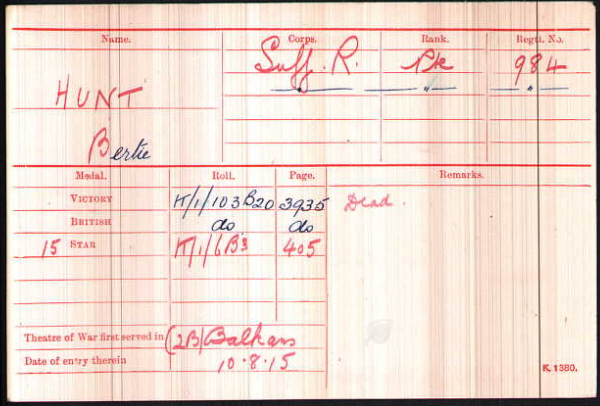 Name. Corps. Rank. Regtl. No.
HUNT Suff. R. Pte 984
" " "
Bertie
Medal. Roll. Page. Remarks.
VICTORY K/1/103B20 3935 Dead.
BRITISH do do
15 STAR K/1/6B3 405
Theatre of War first served in (2B) Balkans
Date of entry therein 10.8.15
K. 1380.